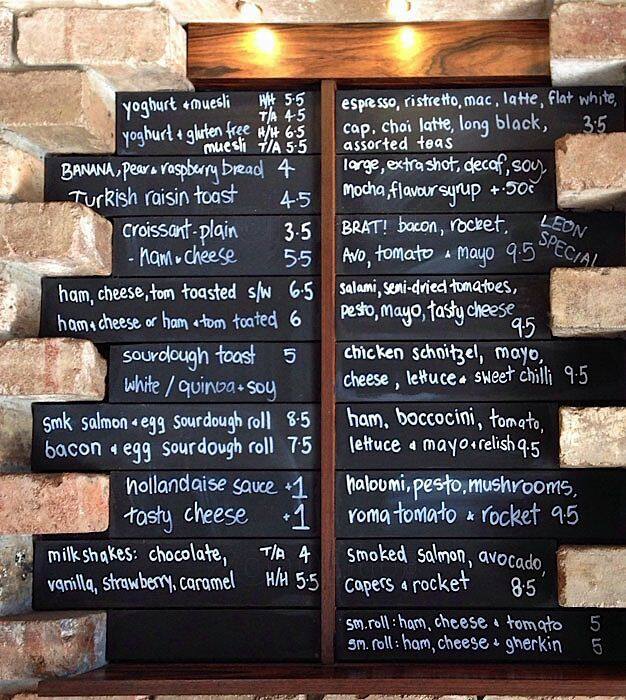 yoghurt + muesli H/H 5.5
T/A 4.5
yoghurt + gluten free H/H 6.5
muesli T/A 5.5
BANANA, Pear & raspberry bread 4
Turkish raisin toast 4.5
croissant-plain 3.5
- ham & cheese 5.5
ham, cheese, tom toasted s/w 6.5
ham & cheese or ham + tom toated 6
sourdough toast 5
white / quinoa + soy
smk salmon + egg sourdough roll 8.5
bacon + egg sourdough roll 7.5
hollandaise sauce +1
tasty cheese +1
milkshakes: chocolate, T/A 4
vanilla, strawberry, caramel H/H 5.5
espresso, ristretto, mac, latte, flat white,
cap, chai latte, long black, 3.5
assorted teas
large, extra shot, decaf, soy,
mocha, flavour syrup + .50c
BRAT! bacon, rocket, LEON
Avo, tomato & mayo 9.5 SPECIAL
salami, semi-dried tomatoes,
pesto, mayo, tasty cheese
9.5
chicken schnitzel, mayo,
cheese, lettuce & sweet chilli 9.5
ham, boccocini, tomato,
lettuce & mayo + relish 9.5
haloumi, pesto, mushrooms,
roma tomato & rocket 9.5
smoked salmon, avocado,
capers & rocket 8.5
sm.roll: ham, cheese & tomato 5
sm.roll: ham, cheese & gherkin 5